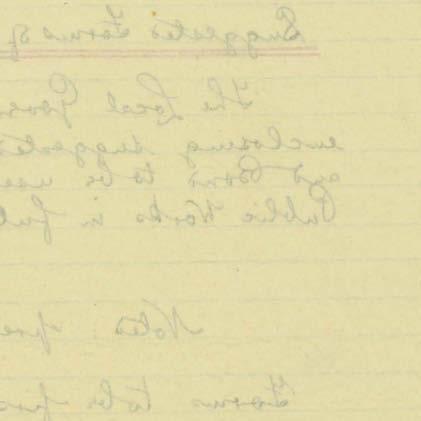 Suggested Forms of
The Local Gover
enclosing suggeste
and Bond to be use
Public Works in fut
Notes pre
Forms to be